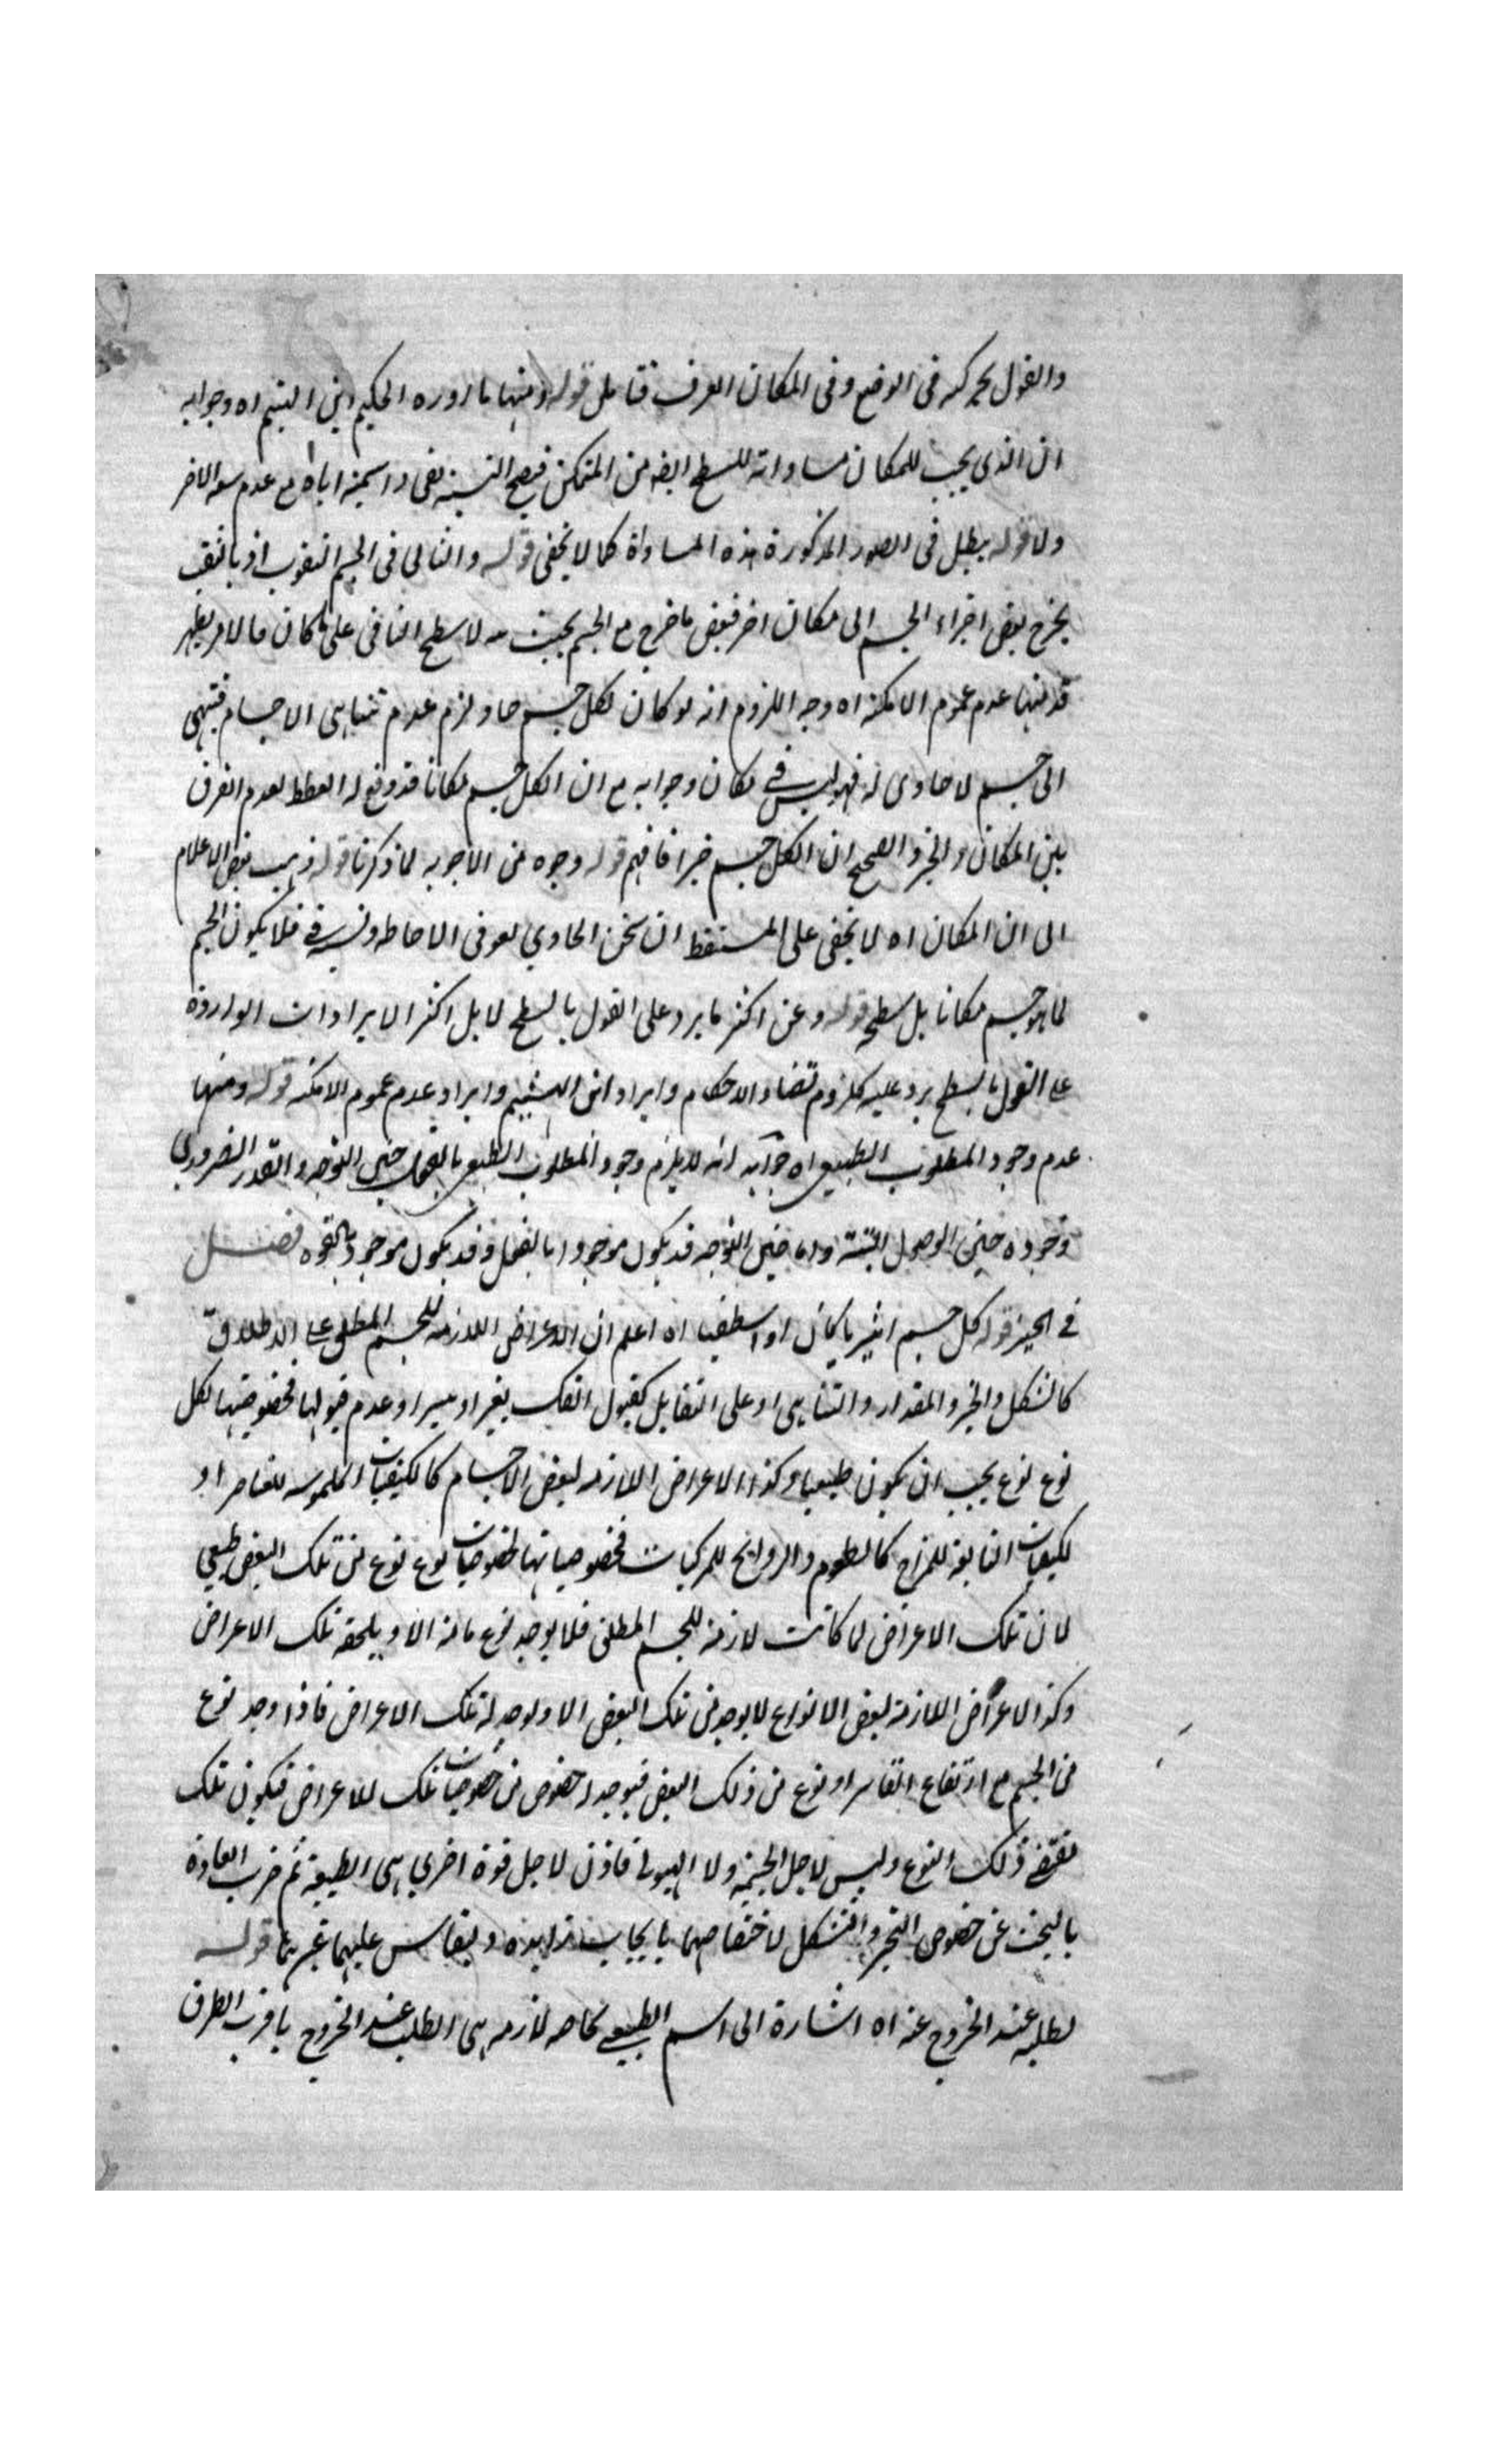 والقول بحركه فى الوضع وفى المكان العرف فتامل قوله ومنها ما اورده الحكيم ابن الهيثم اه وجوابه
ان الذى يجب للمكان مساواته للسطح من المتمكن فيصح النسبة اياه مع عدم سعه الاخر
ولا قوله يبطل فى الصور المذكورة هذه المساواة كما لا يخفى قوله والتالى فى الجسم المثقوب اذ بالثقب
يخرج بعض اجزاء الجسم الى مكان اخر فبعض ما خرج مع الجسم بحيث لا سطح على ما كان
قد منها عدم عموم الامكنه اه وجه اللزوم انه لو كان لكل جسم حاو لزم عدم تناهى الاجسام فينتهى
الى جسم لا حاوى له فهو ليس فى مكان وجوابه مع ان لكل جسم مكانا قد وقع له الغلط لعدم الفرق
بين المكان والحيز والصحيح ان لكل جسم حيزا فافهم قوله وجوه من الاجوبه لما ذكرنا قوله ذهب بعض الاعلام
الى ان المكان اه لا يخفى على المستيقظ ان ثخن الحاوي لغو فى الاحاطه فلا يكون الجسم
لما هو جسم مكانا بل سطحه قوله وعن اكثر ما يرد على القول بالسطح لا بل اكثر الايرادات الواردة
على القول بالسطح يرد عليه كلزوم تضاد الاحكام وايراد ابن الهيثم وايراد عدم عموم الامكنه قوله ومنها
عدم وجود المطلوب الطبيعى اه جوابه انه لا يلزم وجود المطلوب الطبيعى بالفعل حين التوجه والقدر الضرورى
وجوده حين الوصول البتة واما حين التوجه قد يكون موجودا بالفعل وقد يكون موجودا بالقوه فصل
فى الحيز قوله كل جسم اثيريا كان او اسطقسيا اه اعلم ان الاعراض اللازمه للجسم المطلق على الاطلاق
كالشكل والحيز والمقدار والتناهى او على التقابل كقبول الفك بعسر او يسر او عدم قبولها فخصوصيتها لكل
نوع نوع يجب ان يكون طبيعيا وكذا الاعراض اللازمه لبعض الاجسام كالكيفيات الملموسه للعناصر او
لكيفيات التابعة للمزاج كالطعوم والروايح للمركبات فخصوصياتها لخصوصيات نوع نوع من تلك البعض طبيعى
لان تلك الاعراض لما كانت لازمة للجسم المطلق فلا يوجد نوع ما منه الا ويلحقه تلك الاعراض
وكذا الاعراض اللازمة لبعض الانواع لا يوجد من تلك البعض الا ويوجد له تلك الاعراض فاذا وجد نوع
من الجسم مع ارتفاع القاسر او نوع من ذلك البعض فيوجد له خصوص من خصوصيات تلك الاعراض فيكون تلك
مقتضى ذلك النوع وليس لاجل الجسمية ولا الهيولى فاذن لاجل قوة اخرى هى الطبيعة ثم جرت العادة
بالبحث عن خصوص التحيز والتشكل لاختصاصهما ويقاس عليهما غيرهما قوله
لطلبه عند الخروج عنه اه اشارة الى اسم الطبيعى بخاصه لازمه هى الطلب عند الخروج باقرب الطرق